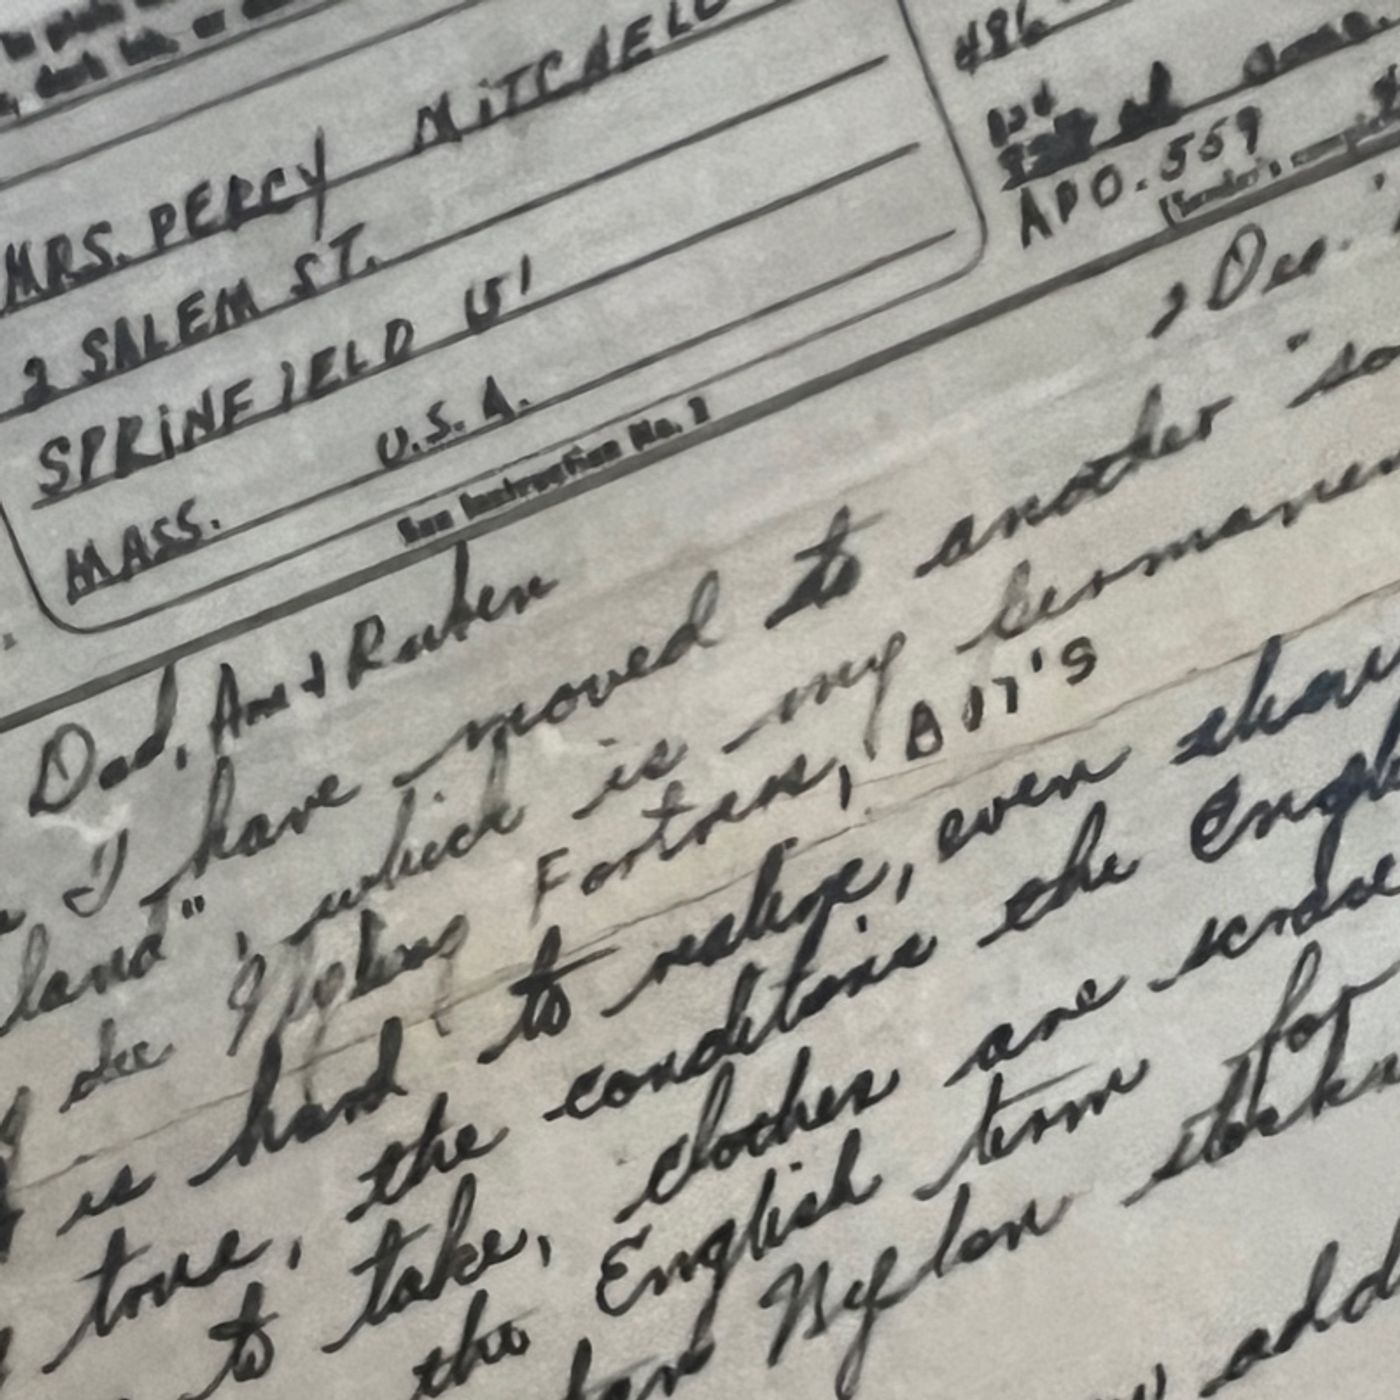 MRS. PERCY MITCAELL
2 SALEM ST.
SPRINFIELD 15'
MASS. U.S.A.
See Instruction No. 2
486
APO. 559
(Sender's complete
2 Dec.
Dad, Ann & Ruben
I have moved to another "so
land", which is my permanen
see Flying Fortress, B 17's
is hard to realize, even
true, the conditions the Engl
to take, clothes are scrace
the English term for
Nylon
add